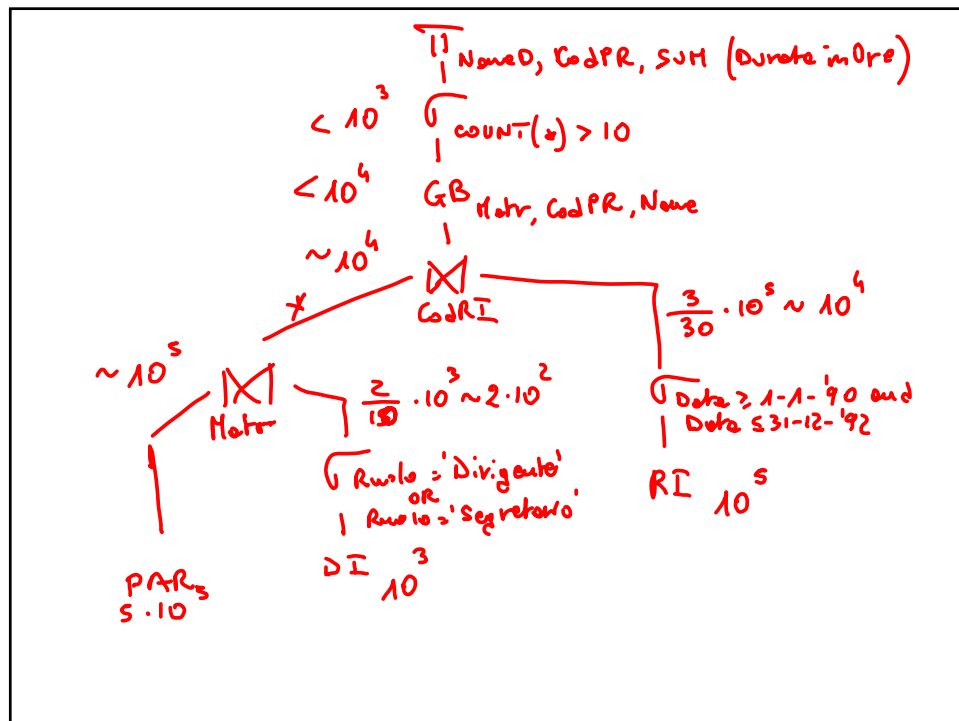 Π NomeD, CodPR, SUM (DurataInOre)
< 10³ σ COUNT(*) > 10
< 10⁴ GB Matr, CodPR, Nome
~ 10⁴ ⋈ CodRI
3/30 · 10⁵ ~ 10⁴
~ 10⁵ ⋈ Matr
2/10 · 10³ ~ 2 · 10²
σ Data ≥ 1-1-'90 and
Data ≤ 31-12-'92
σ Ruolo = 'Dirigente'
OR
Ruolo = 'Segretario'
RI 10⁵
DI 10³
PAR
5 · 10⁵